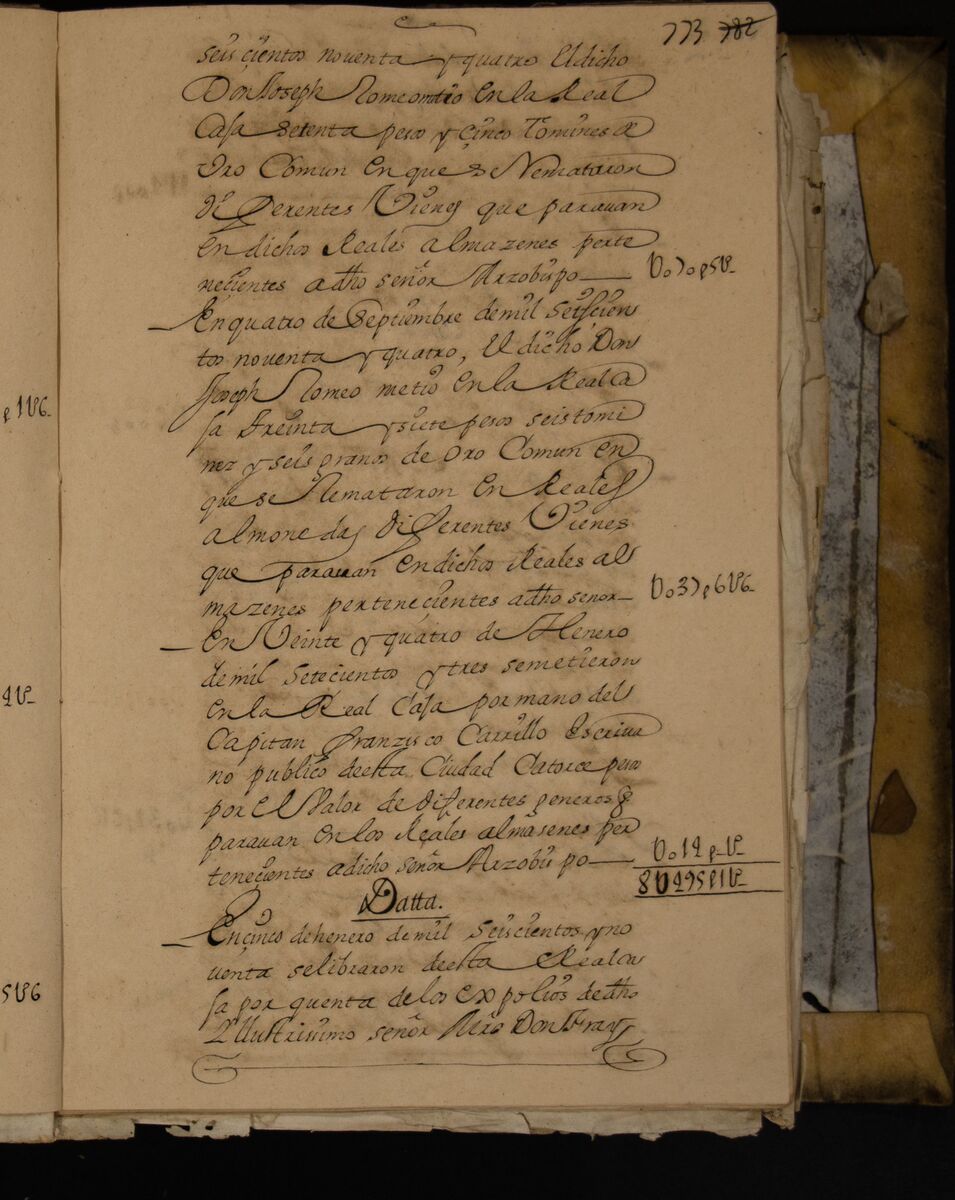 773 782
seiscientos noventa y quatro El dicho
Don Joseph Romeo metio En la Real
Casa setenta pesos y cinco tomines de
Oro Comun En que se Remataron
diferentes Vienes que parauan
En dichos Reales almazenes perte
necientes a dho señor Arzobispo
U070p5U
En quatro de Septiembre de mil Seiscien
tos noventa y quatro, El dicho Don
Joseph Romeo metio En la Real Ca
sa treinta y siete pesos seis tomi
nez y seis granos de Oro Comun En
que se Remataron En Reales
almonedas diferentes Vienes
que parauan En dichos Reales al
mazenes pertenecientes a dho señor
U037p6U6
En Veinte y quatro de Henero
de mil Setecientos y tres se metieron
En la Real Casa por mano del
Capitan Franzisco Carrillo Escriua
no publico deesta Ciudad Catorce pesos
por El Valor de diferentes generos q
parauan En los Reales almasenes per
tenecientes a dicho señor Arzobispo
U014p U
8U495p1U
Datta.
En cinco de henero de mil Seiscientos y no
uenta se libraron deesta Real ca
sa por quenta de los expolios de dho
Illustrissimo señor Mro Don Fray
p1U6
4U
5U6